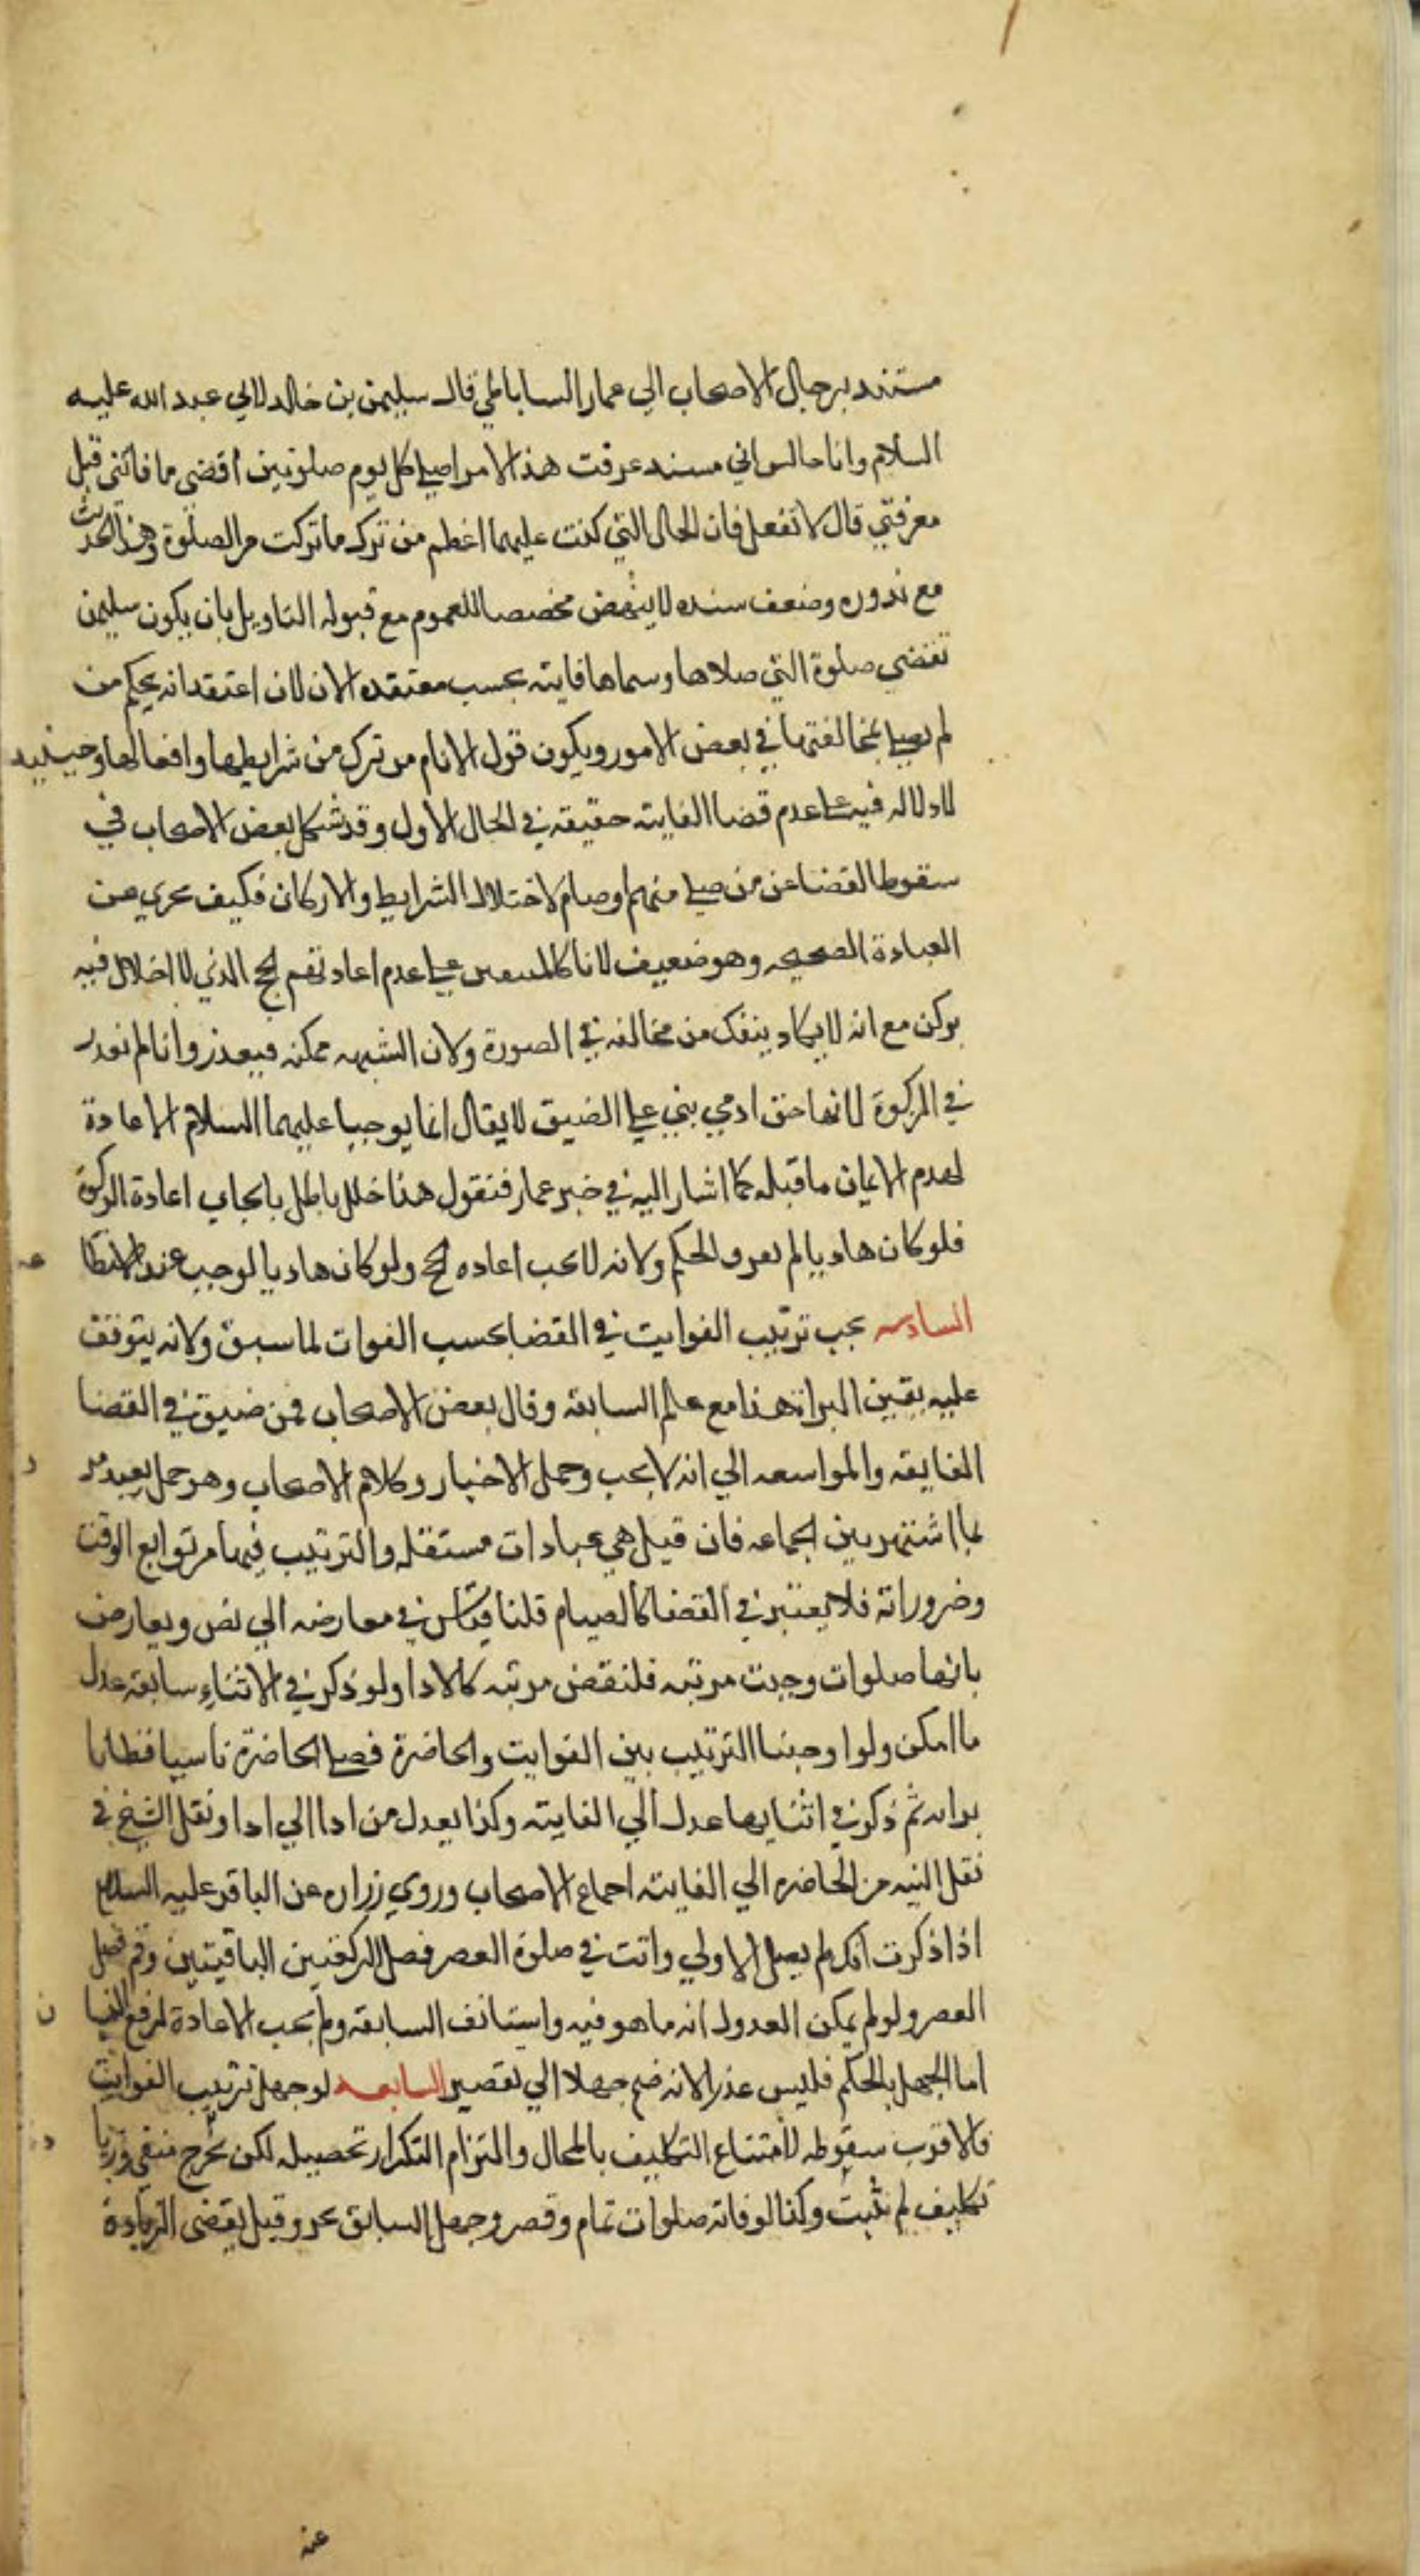 مستند برجال الاصحاب الي عمار الساباطي قال سليمن بن خالد لابي عبد الله عليه
السلام وانا جالس اني مند عرفت هذا الامر اصلي كل يوم صلوتين اقضي ما فاتني قبل
معرفتي قال لا تفعل فان الحال التي كنت عليها اعظم من ترك ما تركت من الصلوة وهذا الحديث
مع ندوره وضعف سنده لا ينهض مخصصا للعموم مع قبوله التاويل بان يكون سليمن
تقضي صلوة التي صلاها وسماها فايته بحسب معتقده الان لان اعتقد انه بحكم من
لم يصل لمخالفتها في بعض الامور ويكون قول الامام من ترك من شرايطها وافعالها وحينيد
لا دلاله فيه على عدم قضا الفايته حقيقه في الحال الاول وقد شكل بعض الاصحاب في
سقوط القضا عن من صلى منهم او صام لاختلال الشرايط والاركان فكيف يجري عن
العبادة الصحيحه وهو ضعيف لانا كالمتفقين على عدم اعادتهم الحج الذي لا اخلال فيه
بركن مع انه لا يكاد ينفك من مخالفه في الصورة ولان الشبهه ممكنه فيعذر وانا لم نعذر
في الزكوة لانها حق ادمي بني على الضيق لا يقال انما يوجبا عليهما السلام الاعادة
لعدم الايمان ما قبله كما اشار اليه في خبر عمار فنقول هذا خلل باطل بايجاب اعادة الزكوة
فلو كان هاديا لم يعرف الحكم ولانه لا يجب اعاده الحج ولو كان هاديا لوجب عند
السادسه يجب ترتيب الفوايت في القضا بحسب الفوات لما سبق ولانه يتوقف
عليه يقين البراة هذا مع علم السابقه وقال بعض الاصحاب ممن ضيق في القضا
الفايقه والمواسعه الي انه لا يجب وحمل الاخبار وكلام الاصحاب وهو حمل بعيد مر
لما اشتهر بين الجماعه فان قيل هي عبادات مستقله والترتيب فيها من توابع الوقت
وضروراته فلا يعتبر في القضا كالصيام قلنا قياس في معارضه الي نص ويعارض
بانها صلوات وجبت مرتبه فلتقض مرتبه كالادا ولو ذكر في الاثناء سابقه عدل
ما امكن ولو اوجبنا الترتيب بين الفوايت والحاضرة فصلى الحاضرة ناسيا فظانا
براه ثم ذكر في اثنايها عدل الي الفايته وكذا يعدل من ادا الي ادا ونقل الشيخ في
نقل النيه من الحاضره الي الفايته اجماع الاصحاب وروي زراره عن الباقر عليه السلام
اذا ذكرت انك لم يصل الاولي وانت في صلوة العصر فصل الركعتين الباقيتين وقم فصل
العصر ولو لم يمكن العدول انه ما هو فيه واستانف السابقه ولم يجب الاعادة لرفع النسيان
اما الجهل بالحكم فليس عذرا لانه ضم جهلا الي تقصير السابعه لو جهل ترتيب الفوايت
فالاقرب سقوطه لامتناع التكليف بالمحال والتزام التكرار تحصيله لكن يخرج منفي وزيادة
تكليف لم يثبت وكذا لو فاته صلوات تمام وقصر وجهل السابق عدد وقيل يقضي الزيادة
عن